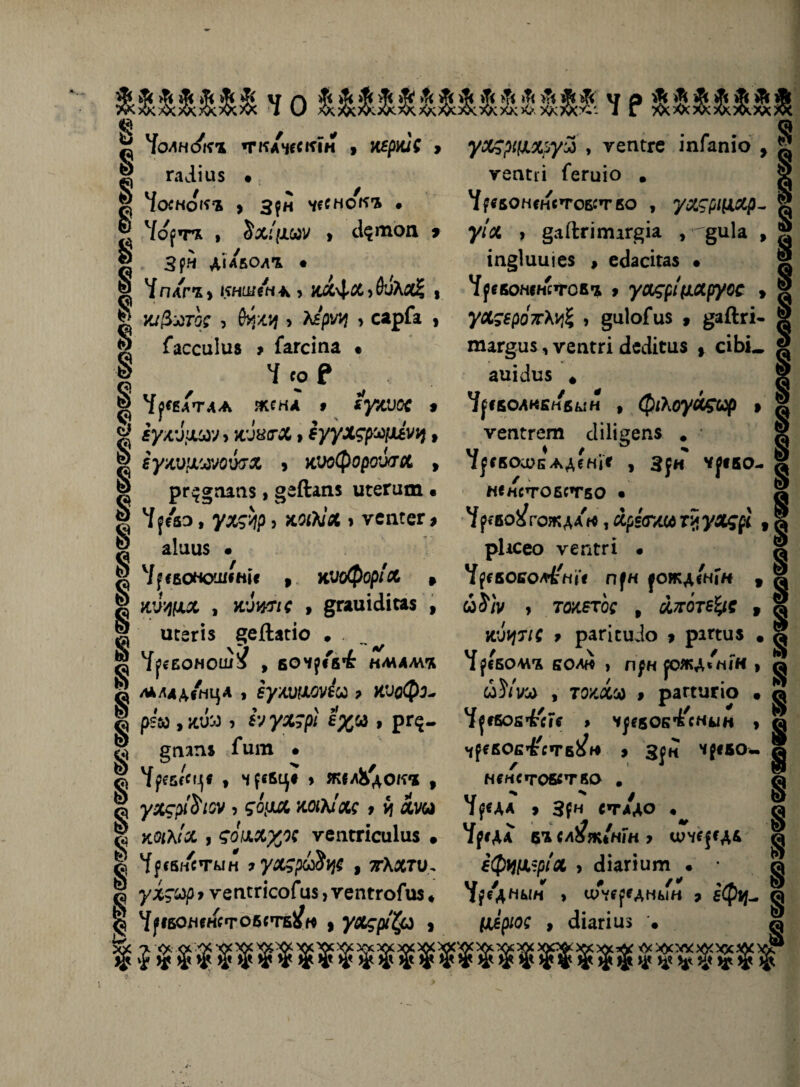 ЧО ЧР
Чолно́къ тка́ческїй , κερκὶς ,
radius .
Чосно́къ , зри чесно́къ .
Чо́ртъ , δαίμων , dęmon ,
зри дїа́волъ .
Чпа́гъ, кише́нѧ , κάψα, θύλαξ ,
κιβωτὸς , θήκη , λέρνη , capſa ,
ſacculus , farcina .
Ч со Р
Чрева́таѧ жена̀ , ἔγκυος ,
ἐγκύμων, κύουσα, ἐγγαστρωμένη,
ἐγκυμονοῦσα , κυοφοροῦσα ,
pręgnans, geſtans uterum .
Чре́во, γαστὴρ, κοιλία , venter,
aluus .
Чревоноше́нїе , κυοφορία ,
κύημα , κύησις , grauiditas ,
uteris geſtatio .
Чревоношꙋ̀ , во чре́вѣ и҆ма́мъ
младе́нца , ἐγκυμονέω , κυοφο-
ρέω , κύω , ἐν γαστρὶ ἔχω , prę-
gnans ſum .
Чреве́сце , чревцѐ , желꙋ́докъ ,
γαστρίδιον , στόμα κοιλίας , ἡ ἄνω
κοιλία , στόμαχος ventriculus .
Чреви́стый , γαστρώδης , πλατυ-
γάστωρ, ventricoſus, ventroſus.
Чревонеи́стовствꙋю , γαστρίζω ,
γαστριμαργῶ , ventre inſanio ,
ventri ſeruio .
Чревонеи́стовство , γαστριμαρ-
γία , gaſtrimargia , gula ,
ingluuies , edacitas .
Чревонеи́стовъ , γαστρίμαργος ,
γαστερόπληξ , guloſus , gaſtri-
margus, ventri deditus , cibi-
auidus .
Чреволюби́вый , φιλογάστωρ ,
ventrem diligens .
Чревоѡбѧде́нїе , зри чрево-
неи́стовство .
Чревоꙋгожда́ю , ἀρέσκω τῇ γαστρὶ ,
placeo ventri .
Чревоболѣ́нїе при рожде́нїи ,
ὠδὶν , τοκετὸς , ἀπότεξις ,
κύησις , paritudo , partus .
Чре́вомъ болю̀ , при рожде́нїи ,
ὠδίνω , τοκάω , parturio .
Чревобѣ́сїе , чревобѣ́сный ,
чревобѣ́ствꙋю , зри чрево-
неи́стовство .
Чреда̀ , зри ста́до .
Чреда̀ въ слꙋже́нїи , ѡчередь
ἐφημερία , diarium .
Чре́дный , ѡчере́дный , ἐφη-
μέριος , diarius .